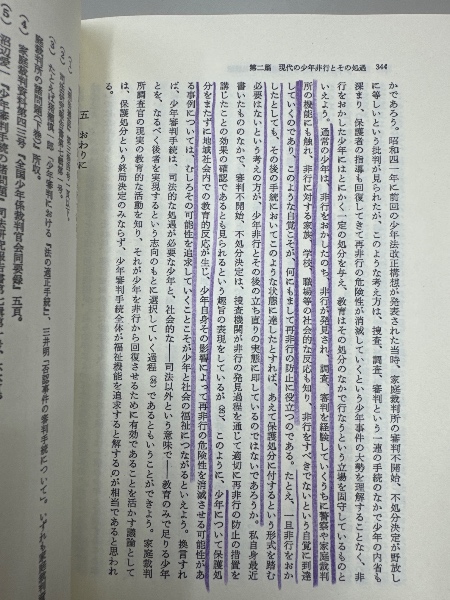 第二篇 現代の少年非行とその処遇 344
かであろう。昭和四一年に前回の少年法改正構想が発表された当時、家庭裁判所の審判不開始、不処分決定が野放し
に等しいという批判が見られたが、このような考え方は、捜査、調査、審判という一連の手続のなかで少年の内省も
深まり、保護者の指導も回復してきて再非行の危険性が消滅していくという少年事件の大勢を理解することなく、非
行をおかした少年にはとにかく一定の処分を与え、教育はその処分のなかで行なうという立場を固守しているものと
いえよう。通常の少年は、非行をおかしたのち、非行が発見され、調査、審判を経験していくうちに警察や家庭裁判
所の機能にも触れ、非行に対する家族、学校、職場等の社会的な反応も知り、非行をすべきでないという自覚に到達
していくのであり、このような自覚こそが、何にもまして再非行の防止に役立つのである。たとえ、一旦非行をおか
したとしても、その後の手続においてこのような状態に達したとすれば、あえて保護処分に付するという形式を踏む
必要はないという考えの方が、少年非行とその後の立ち直りの実態に即しているのではないであろうか。私自身最近
書いたもののなかで、審判不開始、不処分決定は、捜査機関が非行の発見過程を通じて適切に再非行の防止の措置を
講じたことの効果の確認であるとも見られるという趣旨の表現をしているが、このように、少年について保護処
分をまたずに地域社会内での教育的反応が生じ、少年自身その影響によって再非行の危険性を消滅させる可能性があ
る事例については、むしろその可能性を追求していくことこそが少年と社会の福祉につながるといえよう。換言すれ
ば、少年審判手続は、司法的な処遇が必要な少年と、社会的な――司法以外という意味で――教育のみで足りる少年
とを、なるべく後者を実現するという志向のもとに選択していく過程であるともいうことができよう。家庭裁判
所調査官の現実の教育的な活動を知り、それが少年を非行から回復させるために有効であることを活かす議論として
は、保護処分という終局決定のみならず、少年審判手続全体が福祉機能を追求すると解するのが相当であると思われ
る。
五 おわりに
庭裁判所の諸問題下巻』所収。
(4) 家庭裁判資料第四三号『全国少年係裁判官会同要録』五頁。